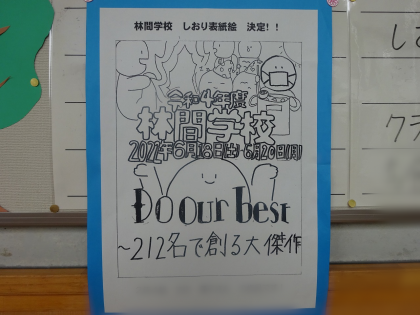 林間学校 しおり表紙絵 決定!!
令和4年度
林間学校
2022年6月18日(土)-6月20日(月)
Do Our Best
~212名で創る大傑作
しお
クラ